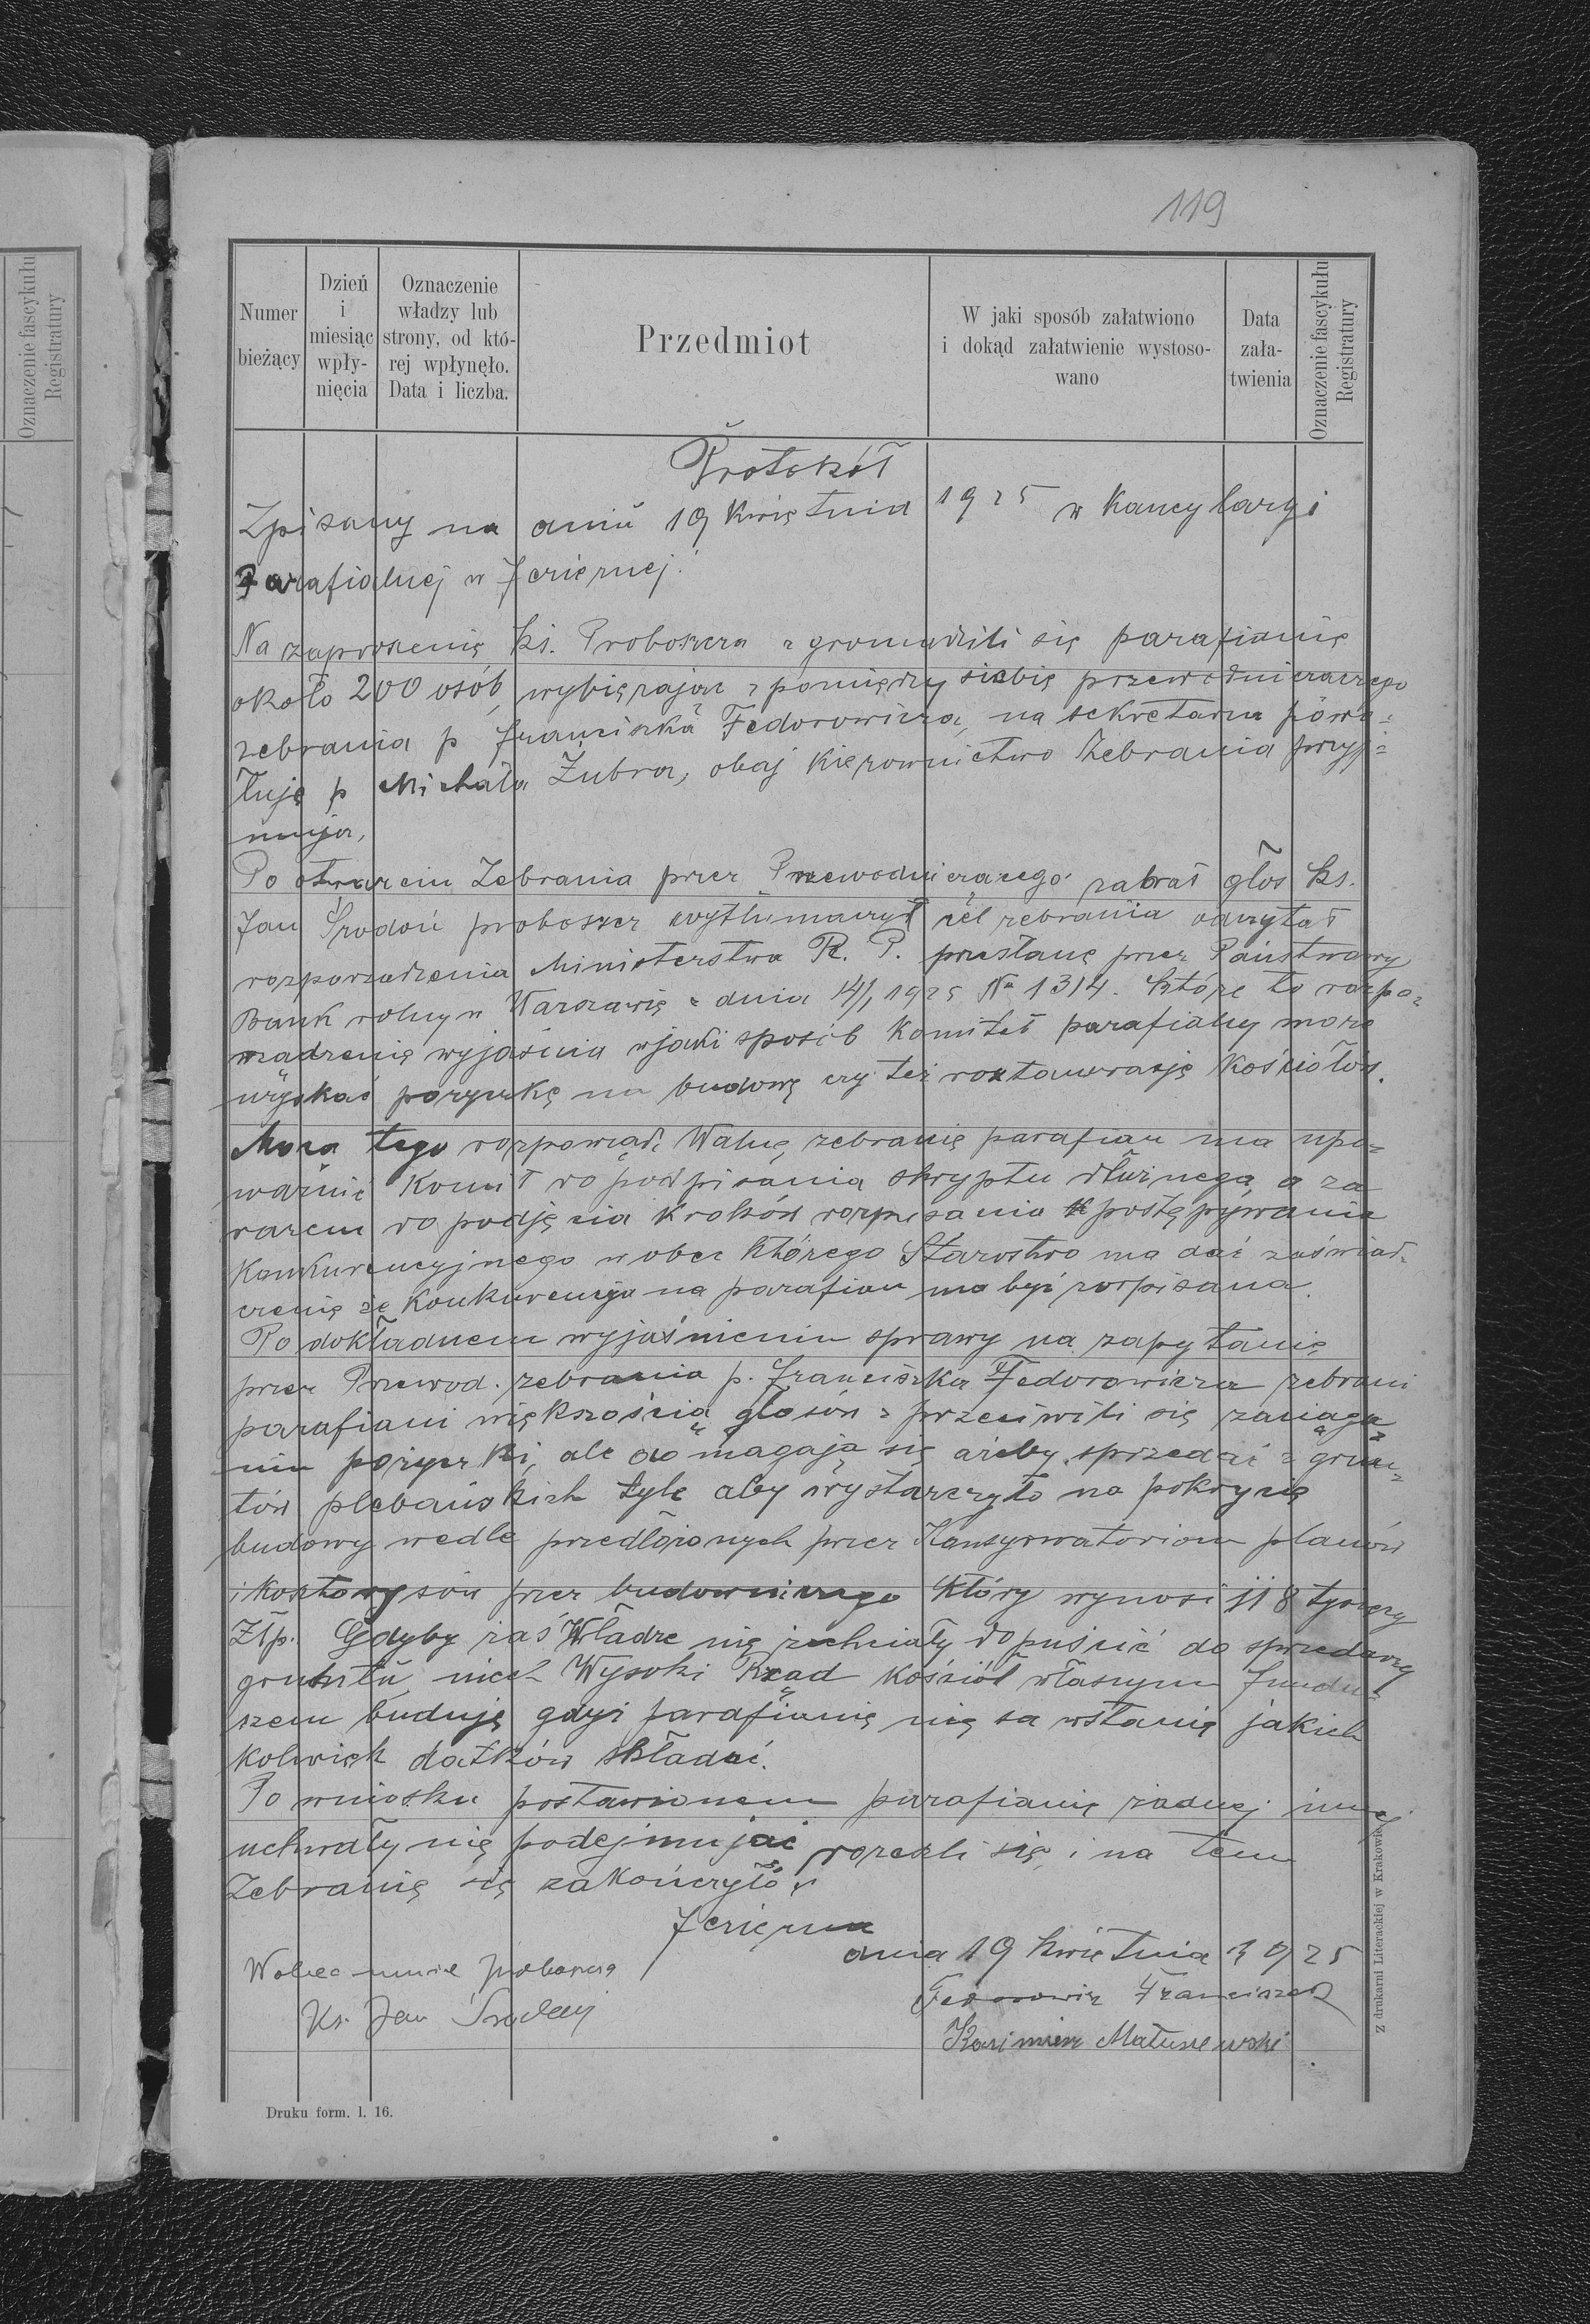 119
Oznaczenie fascykułu
Registratury
Numer
bieżący
Dzień
i
miesiąc
wpły-
nięcia
Oznaczenie
władzy lub
strony, od któ-
rej wpłynęło.
Data i liczba.
Przedmiot
W jaki sposób załatwiono
i dokąd załatwienie wystoso-
wano
Data
zała-
twienia
Oznaczenie fascykułu
Registratury
Protokół
Zpisany na dniu 19 Kwietnia 1925 w Kancylaryi
Parafialnej w Jeziernej.
Na zaproszenie ks. Proboszcza zgromadzili się parafianie
około 200 osób, wybierając z pomiędzy siebie przewodniczącego
zebrania p Franciszka Fedorowicza, na sekretarza powo=
łuje p Michała Żubra, obaj kierownictwo Zebrania przyj=
mują,
Po otwarciu Zebrania przez Przewodniczącego zabrał głos ks.
Jan Środoń proboszcz wytłumaczył cel zebrania odczytał
rozporządzenia Ministerstwa R. P. przesłane przez Państwowy
Bank rolny w Warszawie z dnia 14/1 1925 No 1314. Które to rozpo=
rządzenie wyjaśnia wjaki sposób Komitet parafialny może
uzyskać pożyczkę na budowę czy też restauracje Kościołów.
Moca tego rozporiadź Walne zebranie parafian ma upo=
ważnić Komit do podpisania skryptu dłużnego, a za
razem do podjęcia Kroków rozpisania postępywania
Konkurencyjnego wobec Którego Starostwo ma dać zaświad=
czenie że Konkurencja na parafian ma być rozpisana.
Po dokładnem wyjaśnieniu sprawy na zapytanie
przez Przewod. zebrania p. Franciszka Fedorowicza zebrani
parafiani większością głosów zprzeciwili się zaciągn=
niu pożyczki, ale domagają się ażeby sprzedać z grun=
tów plebańskich tyle aby wystarczyło na pokrycie
budowy wedle przedłożonych przez Konsyrwatoriom planów
i Kosztorysów przez budowniczego Który wynosi 118 tysięcy
Złp. Gdyby zaś Władze nie zechciały dopuścić do sprzedaży
gruntu, niech Wysoki Rząd kościół własnym fundu=
szem buduje gdyż parafianie nie są wstanie jakich
kolwiek datków składać.
Po wniosku postawionem parafianie żadnej innej
uchwały nie podejmując rozeszli się, i na tem
Zebranie się zakończyło
Jezierna
dnia 19 Kwietnia 1925
Wobec mnie proboszcza
Ks. Jan Środoń
Fedorowicz Franciszek
Kazimierz Matuszewski
Z drukarni Literackiej w Krakowie.
Druku form. l. 16.